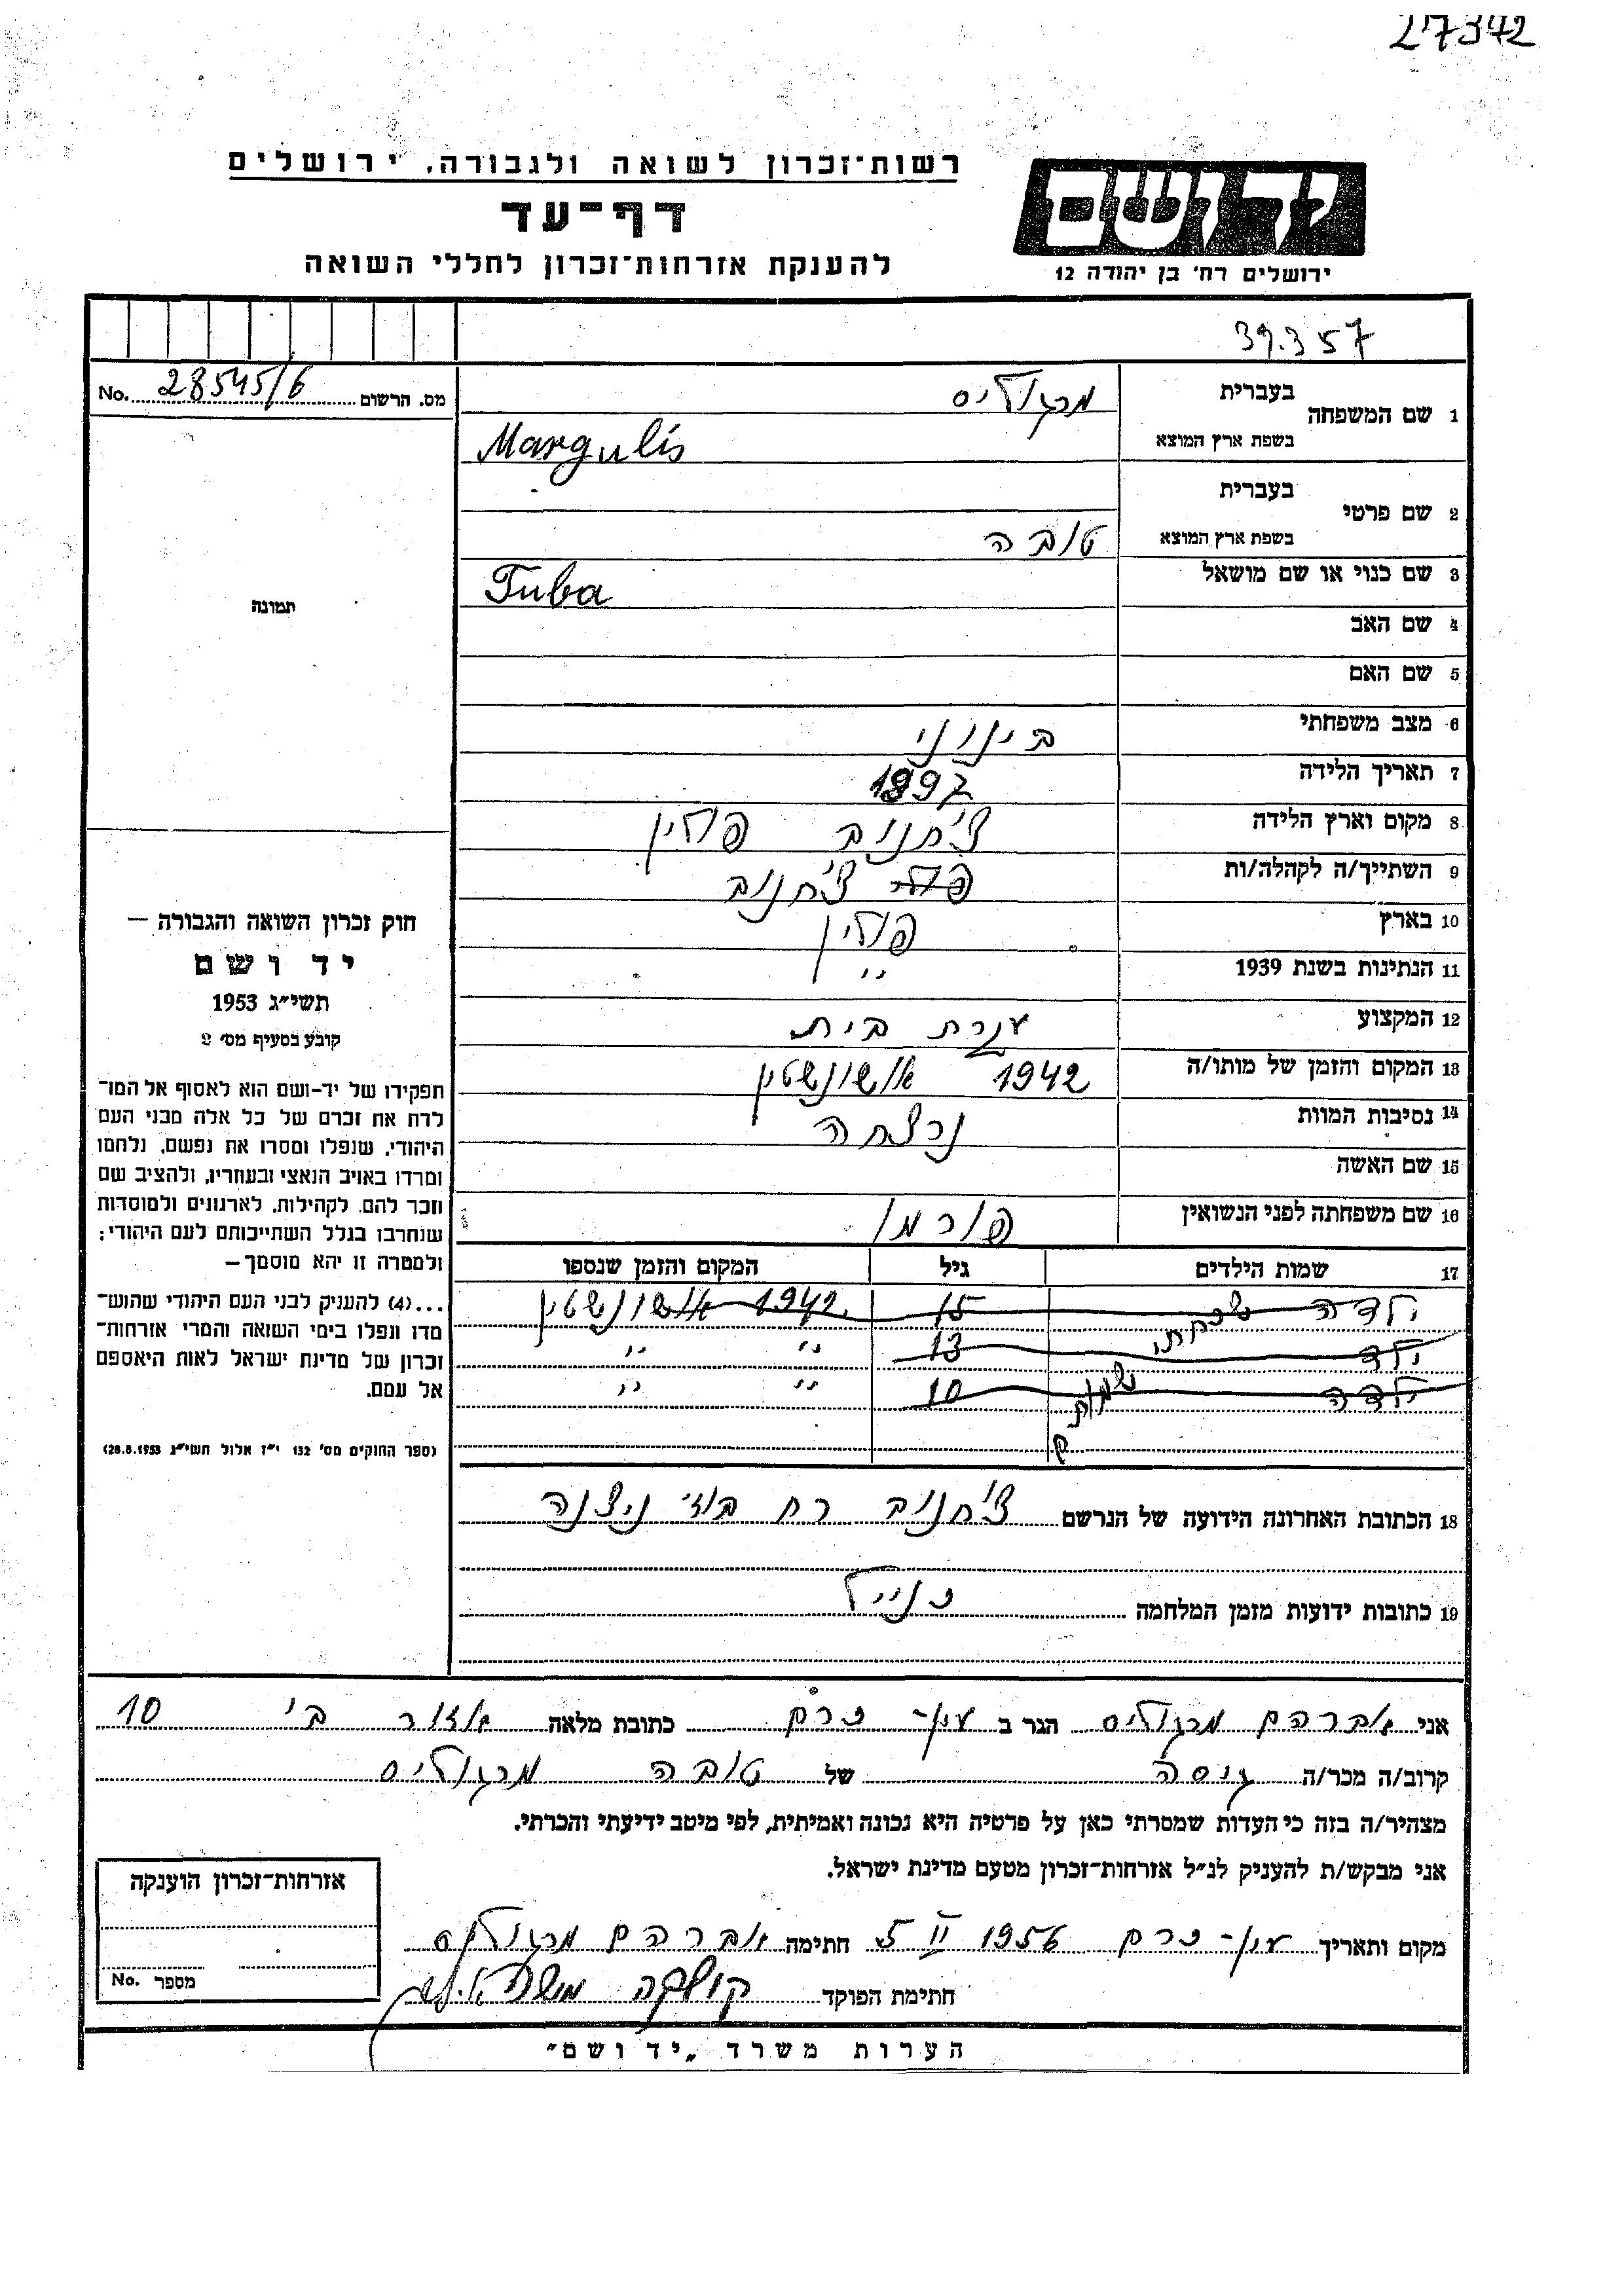 27342
רשות־זכרון לשואה ולגבורה, ירושלים
דף־עד
להענקת אזרחות־זכרון לחללי השואה
ידושם
ירושלים רח' בן יהודה 12
39.357
מס. הרשום 28545/6 No.
1 שם המשפחה בעברית מרגוליס
בשפת ארץ המוצא Margulis
2 שם פרטי בעברית
בשפת ארץ המוצא טובה
3 שם כנוי או שם מושאל Tuba
4 שם האב
5 שם האם
6 מצב משפחתי בינוני
7 תאריך הלידה 1897
8 מקום וארץ הלידה צ'חנוב פולין
9 השתייך/ה לקהלה/ות צ'חנוב
10 בארץ פולין
11 הנתינות בשנת 1939 "
12 המקצוע עקרת בית
13 המקום והזמן של מותו/ה 1942 אושונשטין
14 נסיבות המוות נרצחה
15 שם האשה
16 שם משפחתה לפני הנשואין פורמן
17 שמות הילדים גיל המקום והזמן שנספו
ילדה 15 1942 אושונשטין
ילד 13 " "
ילדה 10 " "
שכחתי
שמות
18 הכתובת האחרונה הידועה של הנרשם צ'חנוב רח
19 כתובות ידועות מזמן המלחמה כנ״ל
תמונה
חוק זכרון השואה והגבורה –
יד ושם
תשי״ג 1953
קובע בסעיף מס' 2
תפקידו של יד-ושם הוא לאסוף אל המו־
לדת את זכרם של כל אלה מבני העם
היהודי, שנפלו ומסרו את נפשם, נלחמו
ומרדו באויב הנאצי ובעוזריו, ולהציב שם
וזכר להם, לקהילות, לארגונים ולמוסדות
שנחרבו בגלל השתייכותם לעם היהודי;
ולמטרה זו יהא מוסמך –
...(4) להעניק לבני העם היהודי שהוש־
מדו ונפלו בימי השואה והמרי אזרחות־
זכרון של מדינת ישראל לאות היאספם
אל עמם.
(ספר החוקים מס' 132 י״ז אלול תשי״ג 28.8.1953)
אני אברהם מרגוליס הגר ב עין-כרם כתובת מלאה אזור ב' 10
קרוב/ה מכר/ה גיסה של טובה מרגוליס
מצהיר/ה בזה כי העדות שמסרתי כאן על פרטיה היא נכונה ואמיתית, לפי מיטב ידיעתי והכרתי.
אני מבקש/ת להעניק לנ״ל אזרחות־זכרון מטעם מדינת ישראל.
מקום ותאריך עין-כרם 5 II 1956 חתימה אברהם מרגוליס
חתימת הפוקד
אזרחות־זכרון הוענקה
מספר No.
הערות משרד „יד ושם"